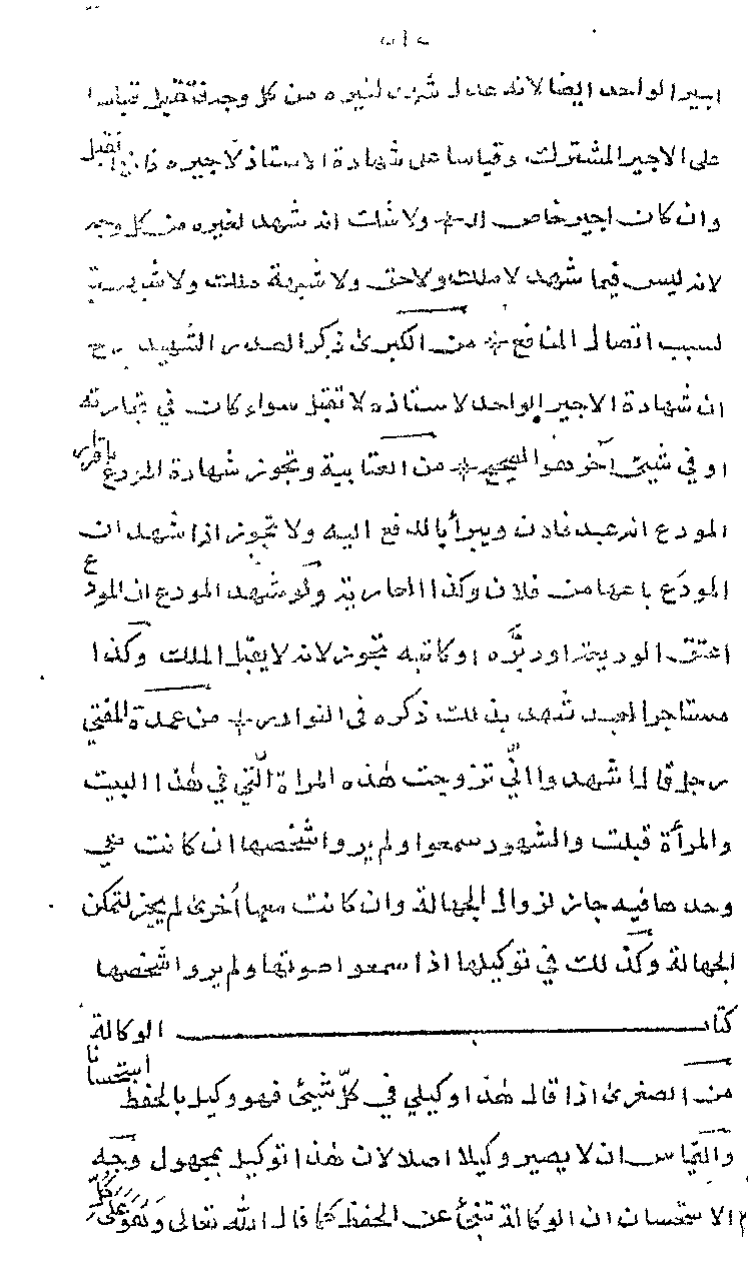 اجير الواحد ايضا لانه عدل شهد لغيره من كل وجه فتقبل قياسا
على الاجير المشترك وقياسا على شهادة الاستاذ لاجيره فانها تقبل
وان كان اجير خاص له ولا شك انه شهد لغيره من كل وجه
لانه ليس فيما شهد لا ملك ولا حق ولا شبهة ملك ولا شبهة
لسبب اتصال المنافع من الكبرى ذكر الصدر الشهيد رح
ان شهادة الاجير الواحد لاستاذه لا تقبل سواء كان في تجارته
او في شيئ آخر هو الصحيح من العتابية وتجوز شهادة المودع باقرار
المودع انه عبد فلان ويبرأ بالدفع اليه ولا تجوز اذا شهد ان
المودَع باعها من فلان وكذا الجارية ولو شهد المودع ان المودع
اعتق الوديعة او دبّره او كاتبه تجوز لانه لا يقبل الملك وكذا
مستاجر العبد شهد بذلك ذكره في النوادر من عمدة المفتي
رجل قال اشهدوا انّي تزوجت هذه المراة الّتي في هذا البيت
والمرأة قبلت والشهود سمعوا ولم يروا شخصها ان كانت هي
وحدها فيه جاز لزوال الجهالة وان كانت معها أخرى لم يجز لتمكن
الجهالة وكذلك في توكيلها اذا سمعوا صوتها ولم يروا شخصها
كتاب الوكالة
من الصغرى اذا قال هذا وكيلي في كلّ شيئ فهو وكيل بالحفظ استحسانا
والقياس ان لا يصير وكيلا اصلا لان هذا توكيل بمجهول وجه
الاستحسان ان الوكالة تنبئ عن الحفظ كما قال الله تعالى وَهُوَ عَلَى كُلِّ